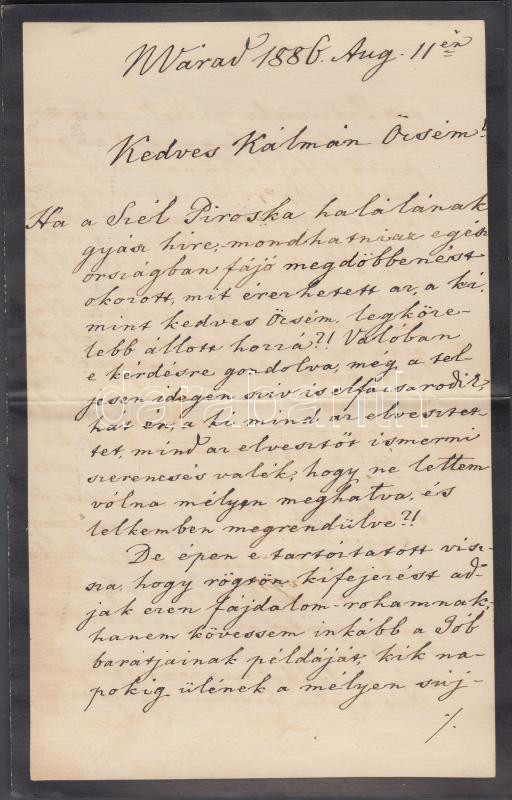 NVárad 1886. Aug. 11én
Kedves Kálmán Öcsém!
Ha a Szél Piroska halálának
gyász hire, mondhatni az egész
országban fájó megdöbbenést
okozott, mit érezhetett az, a ki,
mint kedves Öcsém, legköze-
lebb állott hozzá?! Valóban
e kérdésre gondolva, még a tel-
jesen idegen sziv is elfacsarodik,
hát én, a ki mind az elvesztet-
tet, mind az elvesztőt ismerni
szerencsés valék, hogy ne lettem
vólna mélyen meghatva, és
lelkemben megrendülve?!
De épen e tartóztatott visz-
sza, hogy rögtön kifejezést ad-
jak ezen fájdalom-rohamnak,
hanem kövessem inkább a Jób
barátjainak példáját, kik na-
pokig ülének a mélyen súj-
./.
darabanth